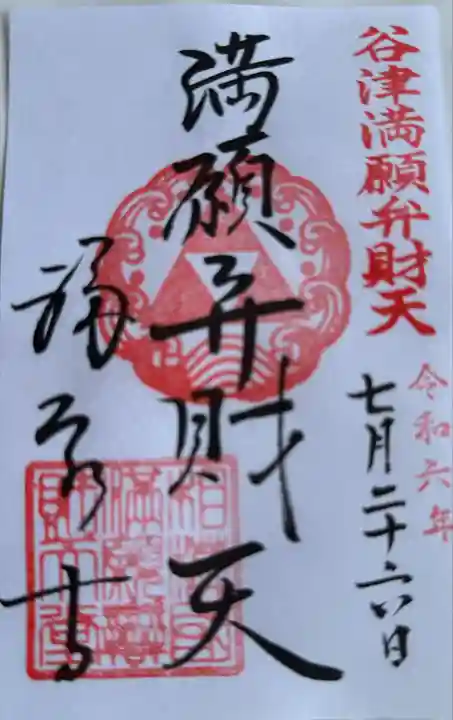 谷津満願弁財天
令和六年
七月二十六日
満願弁財天